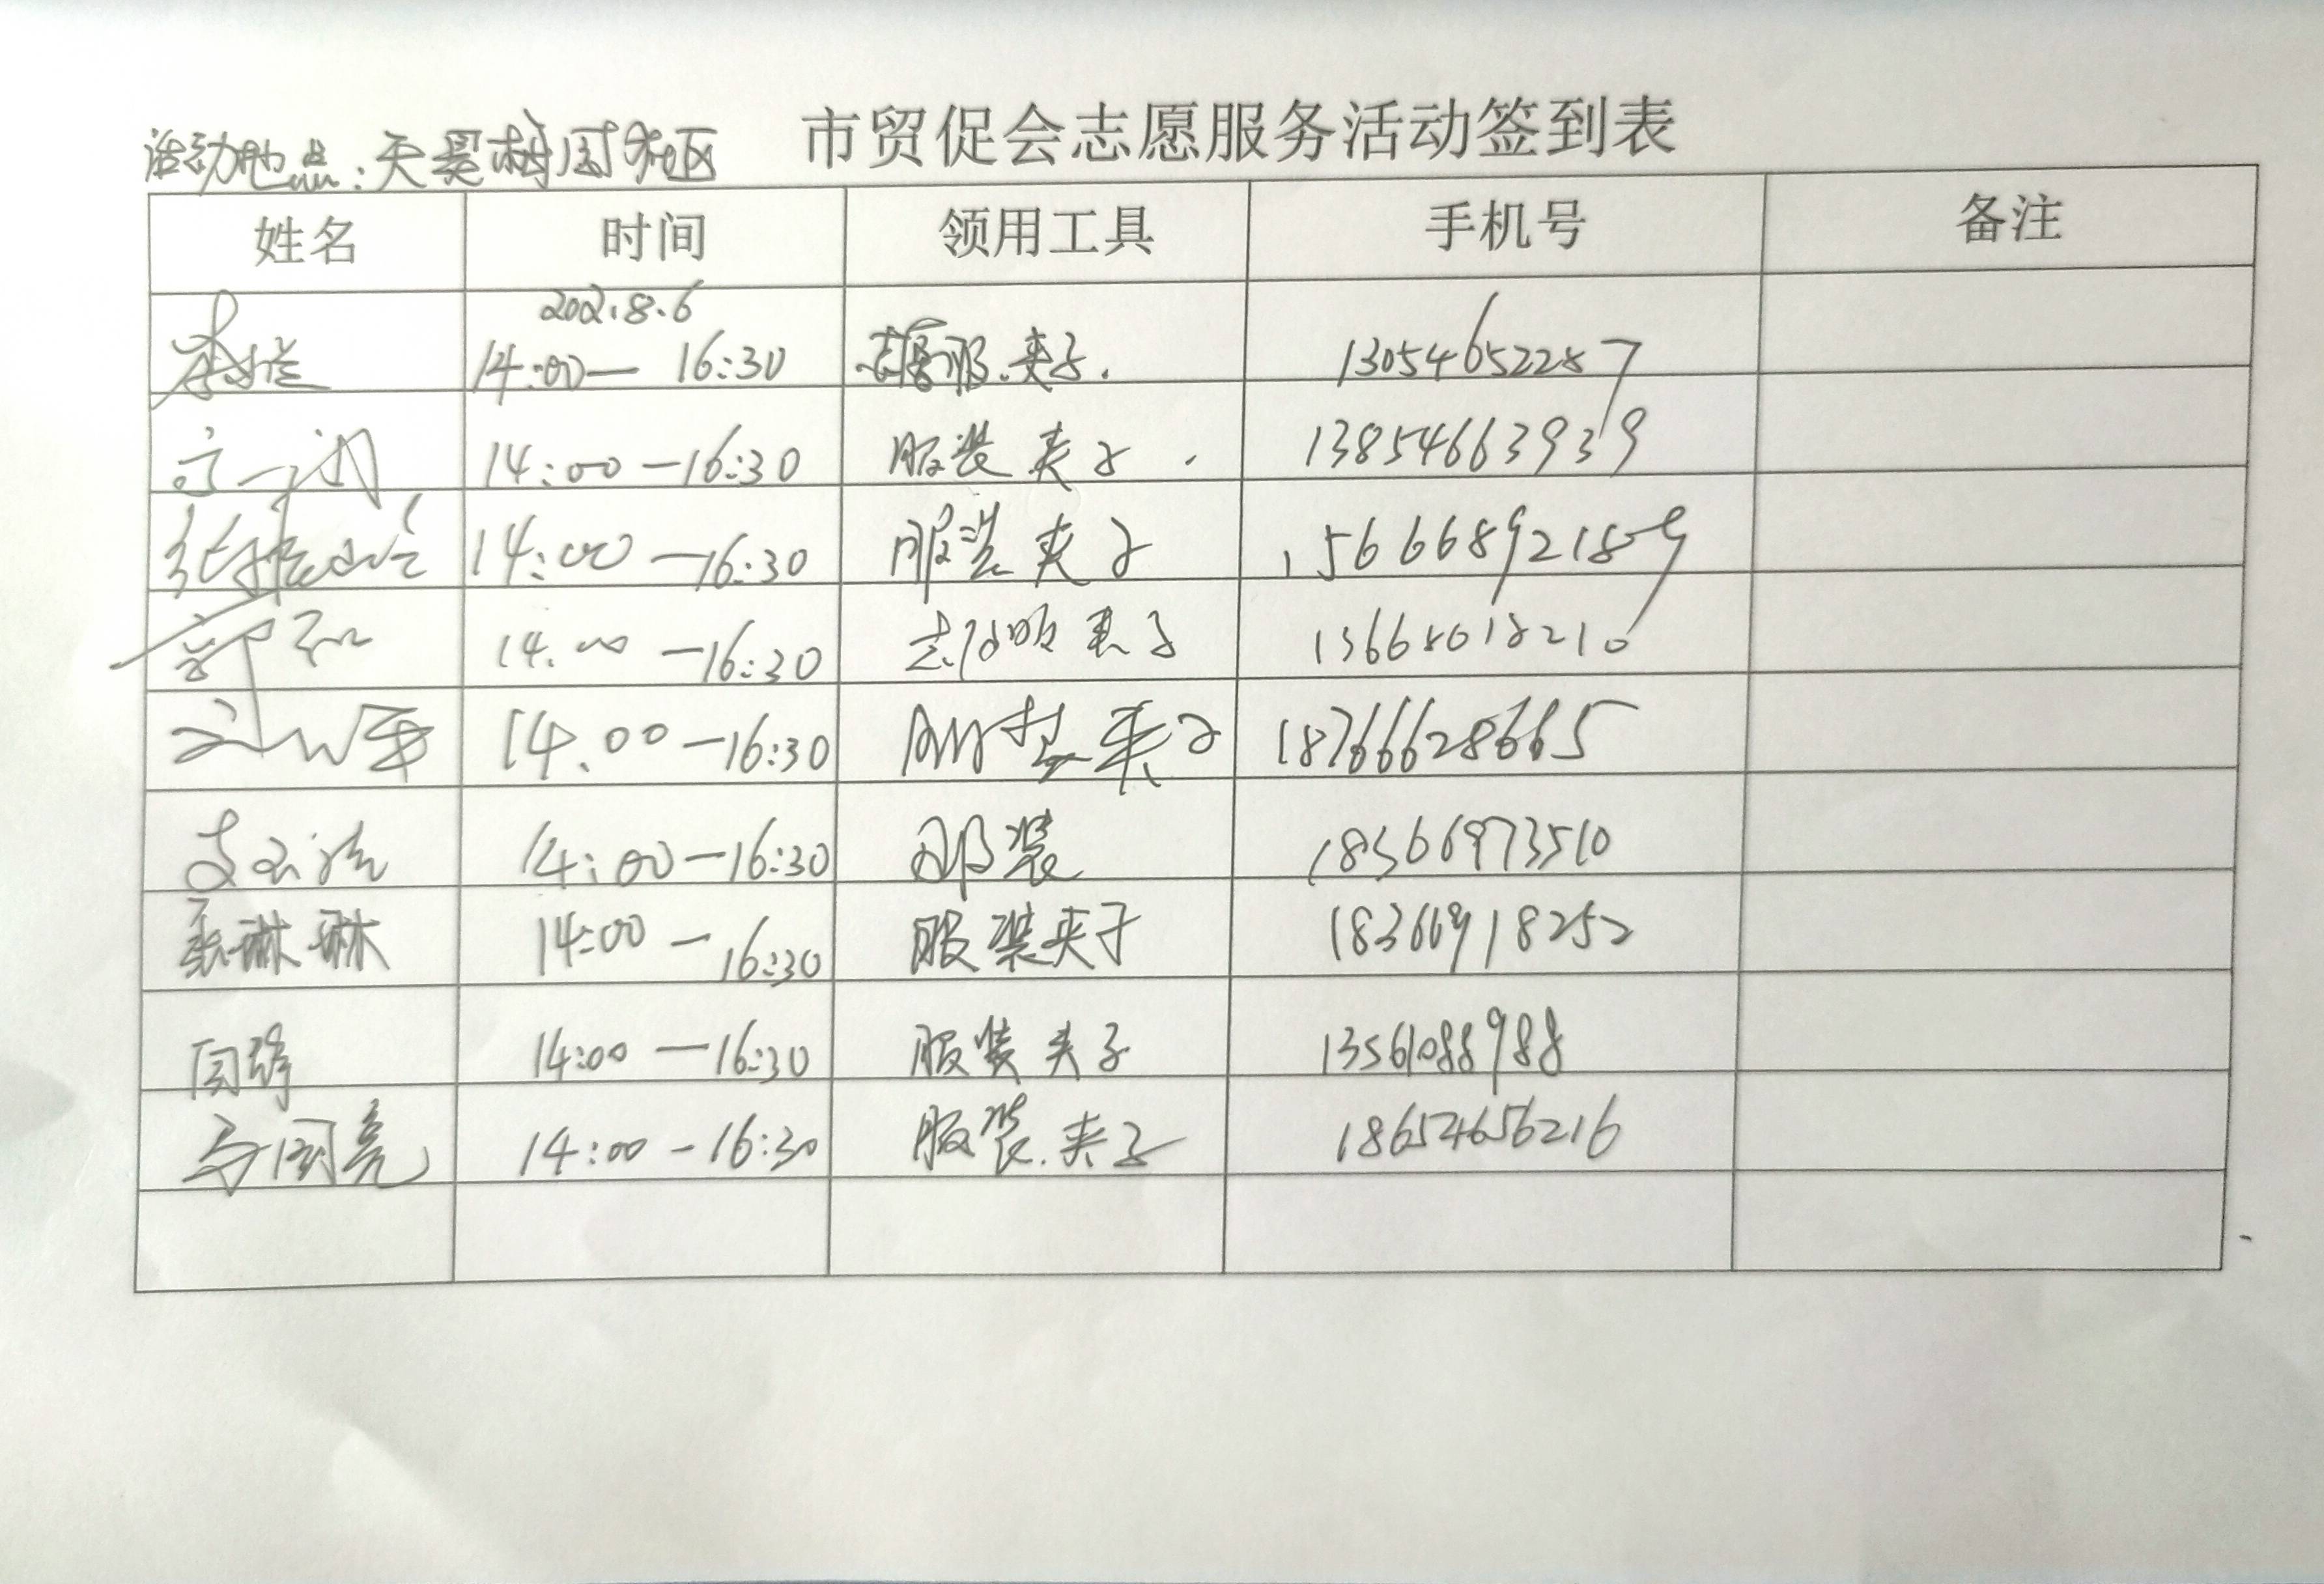 市贸促会志愿服务活动签到表
活动地点:天昊梅园社区
姓名 时间 领用工具 手机号 备注
202.8.6
14:00— 16:30 志愿服.夹子. 13054652287
14:00—16:30 服装 夹子. 13854663939
14:00—16:30 服装 夹子 15666892189
14:00—16:30 夹子 13668618210
14.00—16:30 夹子 18766628665
14:00—16:30 服装 18366973510
张琳琳 14:00—16:30 服装夹子 18366918252
闫铮 14:00—16:30 服装夹子 13561088988
马国亮 14:00-16:30 服装.夹子 18654656216